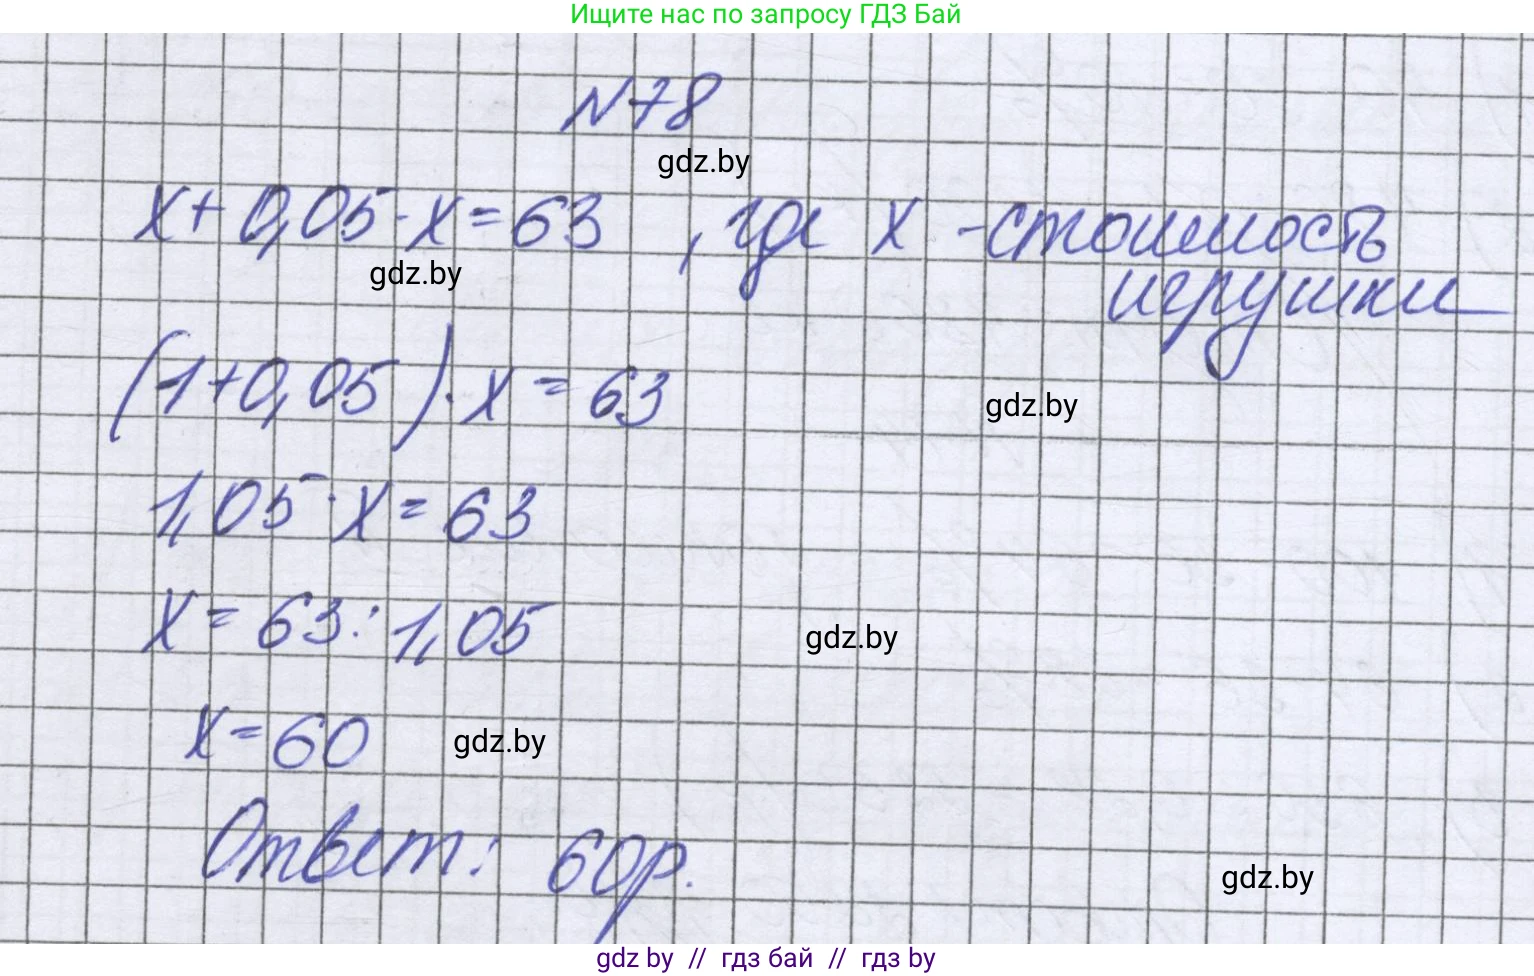 Ищите нас по запросу ГДЗ Бай
N78
gdz.by
x + 0,05 · x = 63 , где x - стоимость
игрушки
gdz.by
(1 + 0,05) · x = 63
gdz.by
1,05 · x = 63
x = 63 : 1,05
gdz.by
x = 60
gdz.by
Ответ: 60р.
gdz.by
gdz by // гдз бай // гдз by